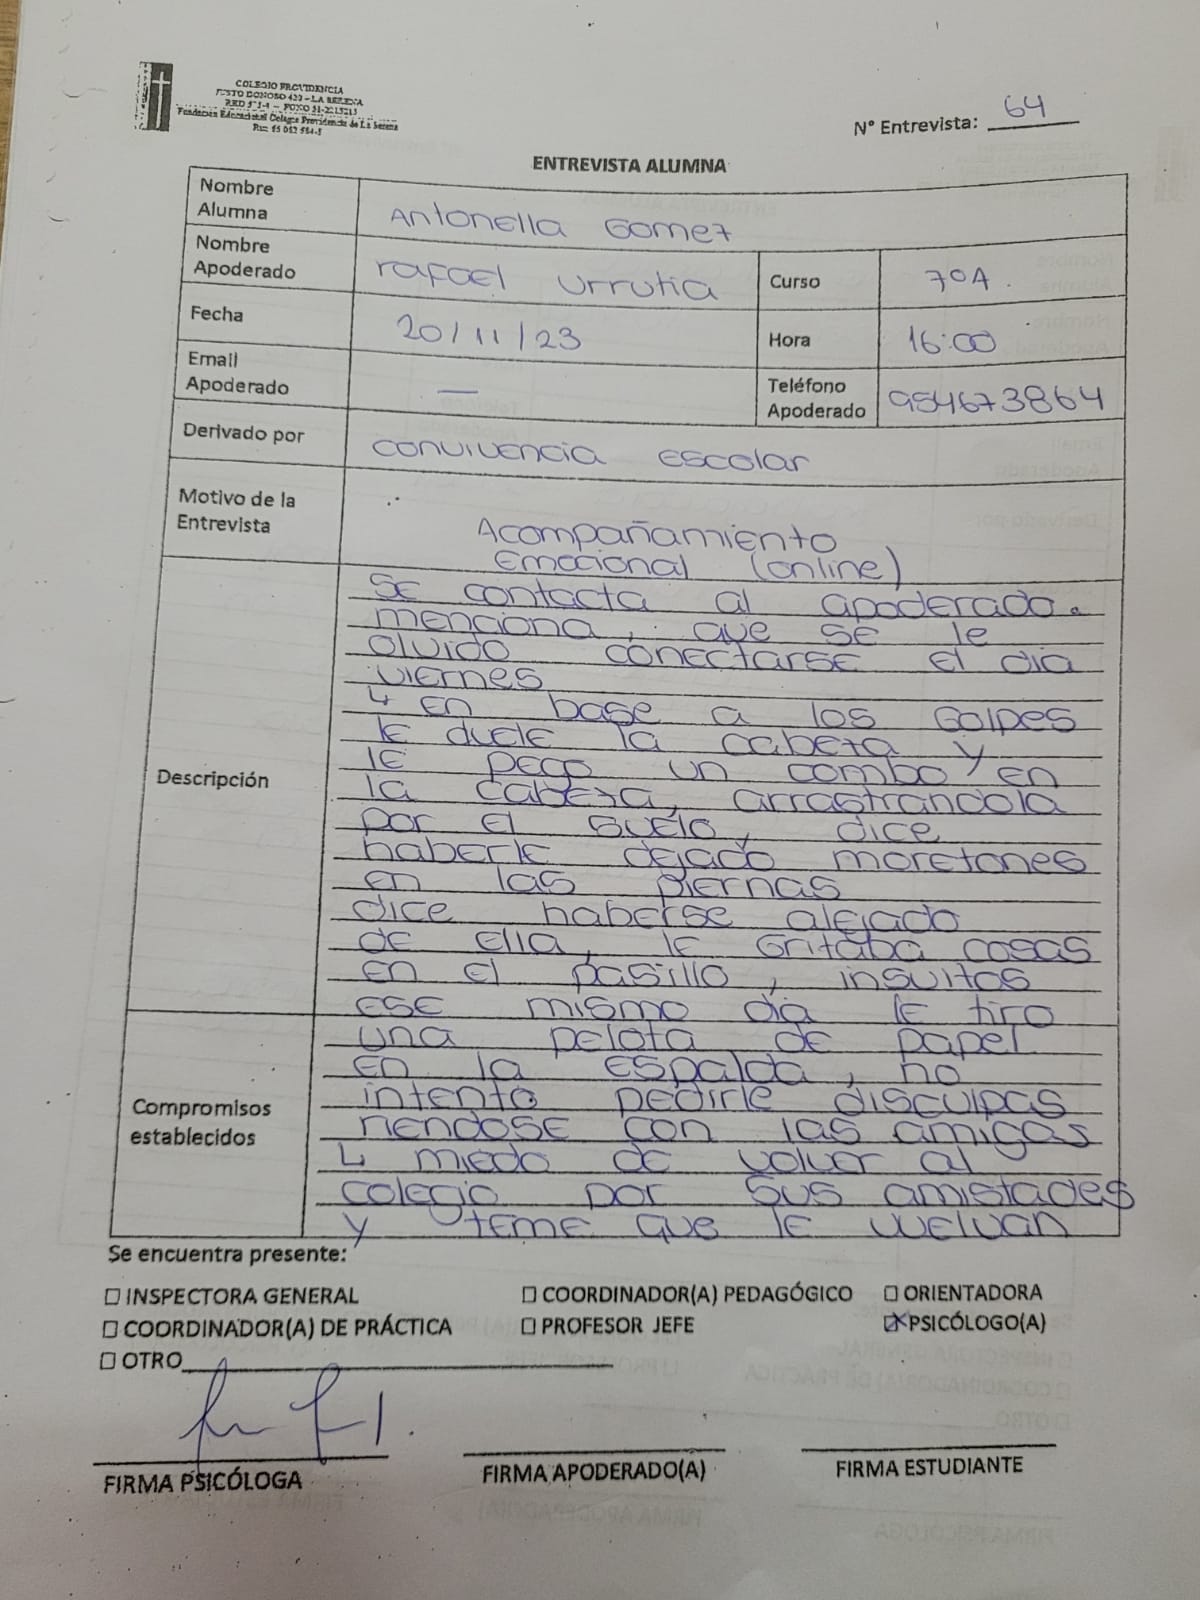 COLEGIO PROVIDENCIA
JUSTO DONOSO 420 - LA SERENA
Fundación Educacional Colegio Providencia de La Serena
N° Entrevista: 64
ENTREVISTA ALUMNA
Nombre Alumna
Antonella Gomez
Nombre Apoderado
rafael Urrutia
Curso
7°A.
Fecha
20/11/23
Hora
16:00
Email Apoderado
—
Teléfono Apoderado
954673864
Derivado por
convivencia escolar
Motivo de la Entrevista
Acompañamiento
Emocional (online)
Descripción
se contacta al apoderado.
menciona, que se le
olvido conectarse el dia
viernes
↳ en base a los golpes
le duele la cabeza y
le pego un combo en
la cabeza, arrastrandola
por el suelo, dice
haberle dejado moretones
en las piernas
dice haberse alejado
de ella, le gritaba cosas
en el pasillo, insultos
ese mismo dia le tiro
Compromisos establecidos
una pelota de papel
en la espalda, no
intento pedirle disculpas
riendose con las amigas
↳ miedo de volver al
colegio por sus amistades
y teme que le vuelvan
Se encuentra presente:
☐ INSPECTORA GENERAL ☐ COORDINADOR(A) PEDAGÓGICO ☐ ORIENTADORA
☐ COORDINADOR(A) DE PRÁCTICA ☐ PROFESOR JEFE ☒ PSICÓLOGO(A)
☐ OTRO
FIRMA PSICÓLOGA FIRMA APODERADO(A) FIRMA ESTUDIANTE